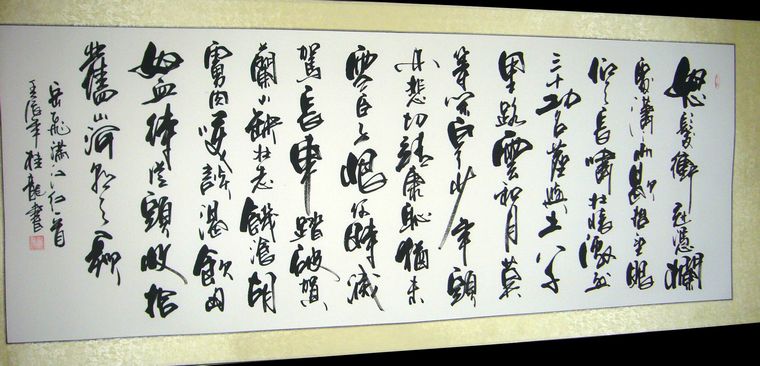 怒髮衝冠憑欄
處瀟瀟雨歇抬望眼
仰天長嘯壯懷激烈
三十功名塵與土八千
里路雲和月莫
等閒白了少年頭
空悲切靖康恥猶未
雪臣子恨何時滅
駕長車踏破賀
蘭山缺壯志飢餐胡
虜肉笑談渴飲匈
奴血待從頭收拾
舊山河朝天闕
岳飛滿江紅一首
壬辰年桂龍書